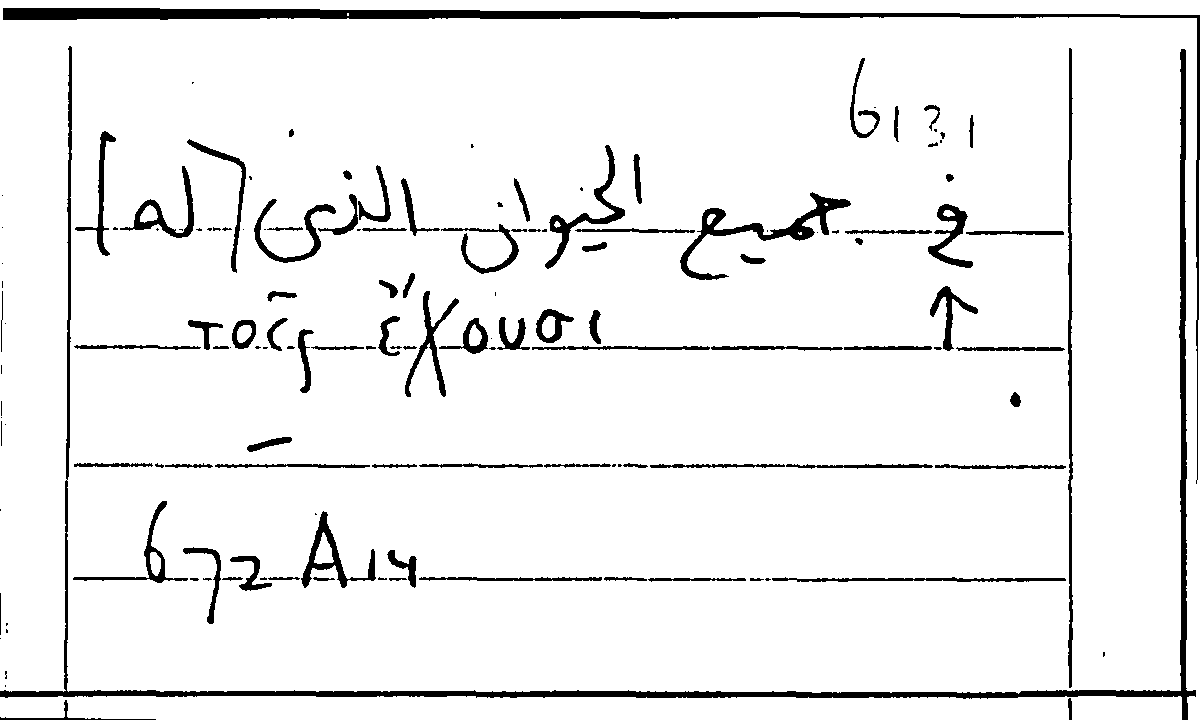 6131
في جميع الحيوان الذي [له]
↑ τοῖς ἔχουσι
672 A 14